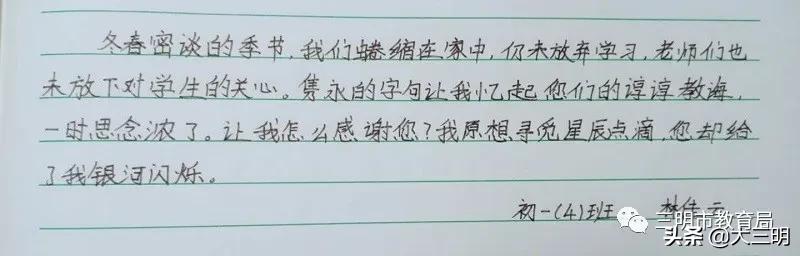 冬春密谈的季节,我们蜷缩在家中,仍未放弃学习,老师们也
未放下对学生的关心。隽永的字句让我忆起您们的谆谆教诲,
一时思念浓了。让我怎么感谢您?我原想寻觅星辰点滴,您却给
了我银河闪烁。
初一(4)班
三明市教育局
头条@大三明